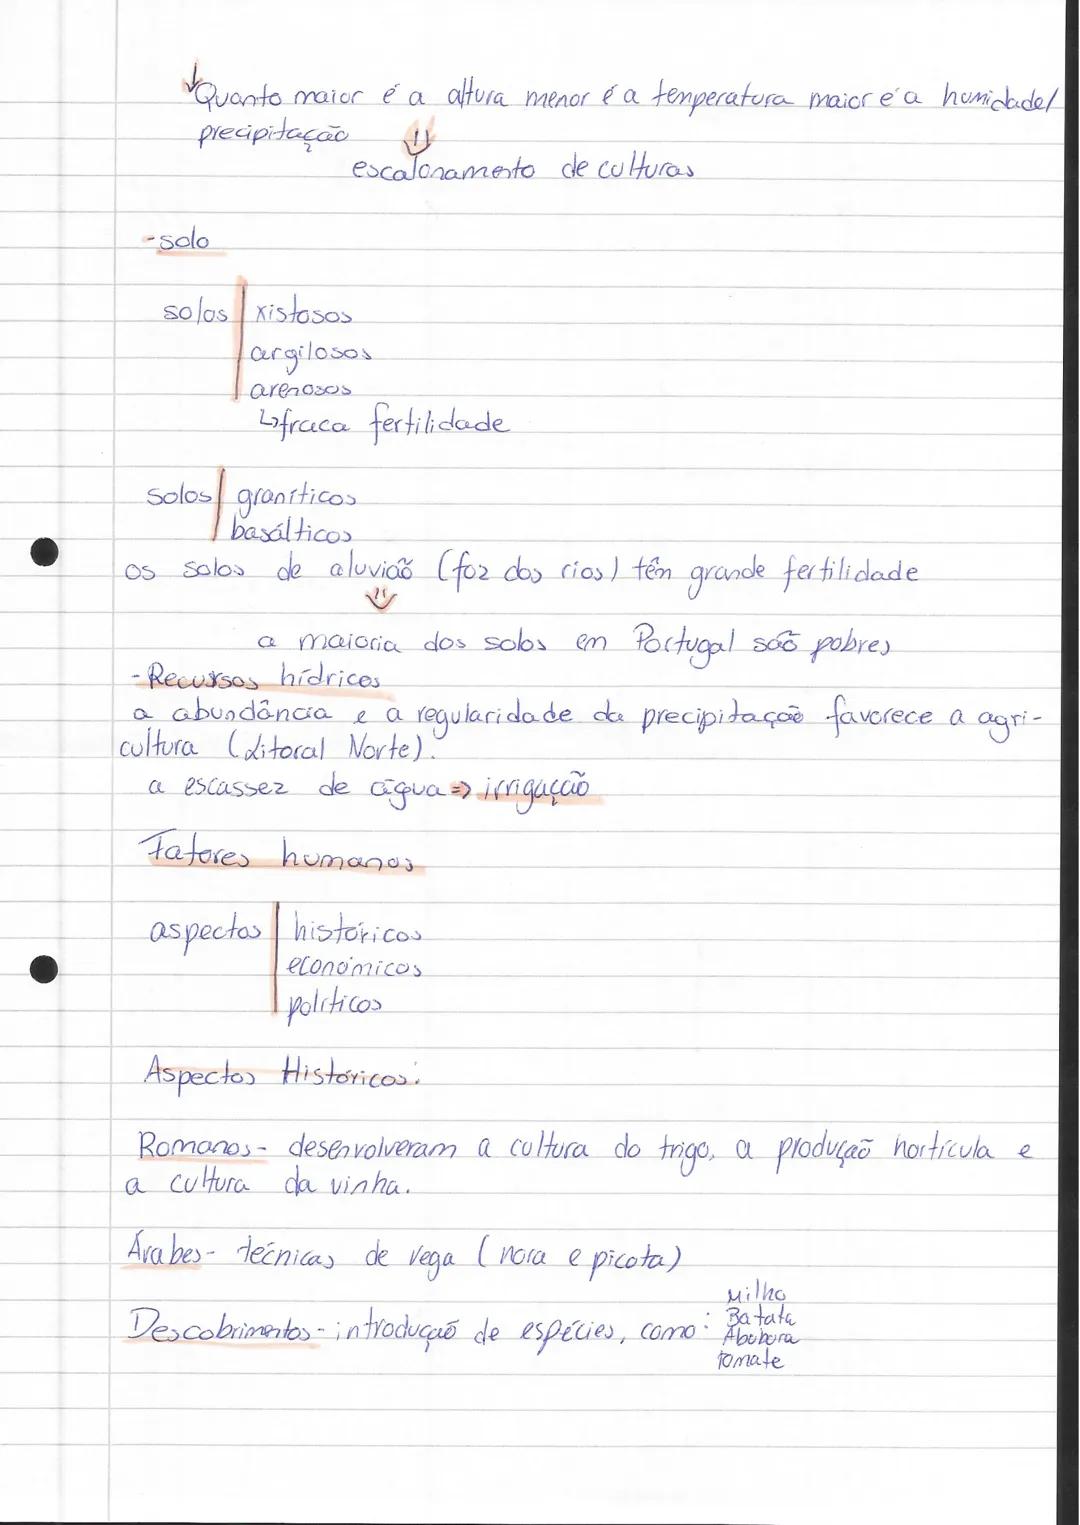 Quanto maior é a altura menor é a temperatura maior é a humidade/
precipitação
escalonamento de culturas
- solo
solos xistosos
argilosos
arenosos
↳ fraca fertilidade
solos graníticos
basálticos
os solos de aluvião (foz dos rios) têm grande fertilidade
a maioria dos solos em Portugal são pobres
- Recursos hídricos
a abundância e a regularidade da precipitação favorece a agri-
cultura (Litoral Norte).
a escassez de água => irrigação
Fatores humanos
aspectos históricos
económicos
políticos
Aspectos Históricos:
Romanos - desenvolveram a cultura do trigo, a produção hortícula e
a cultura da vinha.
Árabes - técnicas de rega (nora e picota)
Descobrimentos - introdução de espécies, como: Milho
Batata
Abobora
tomate